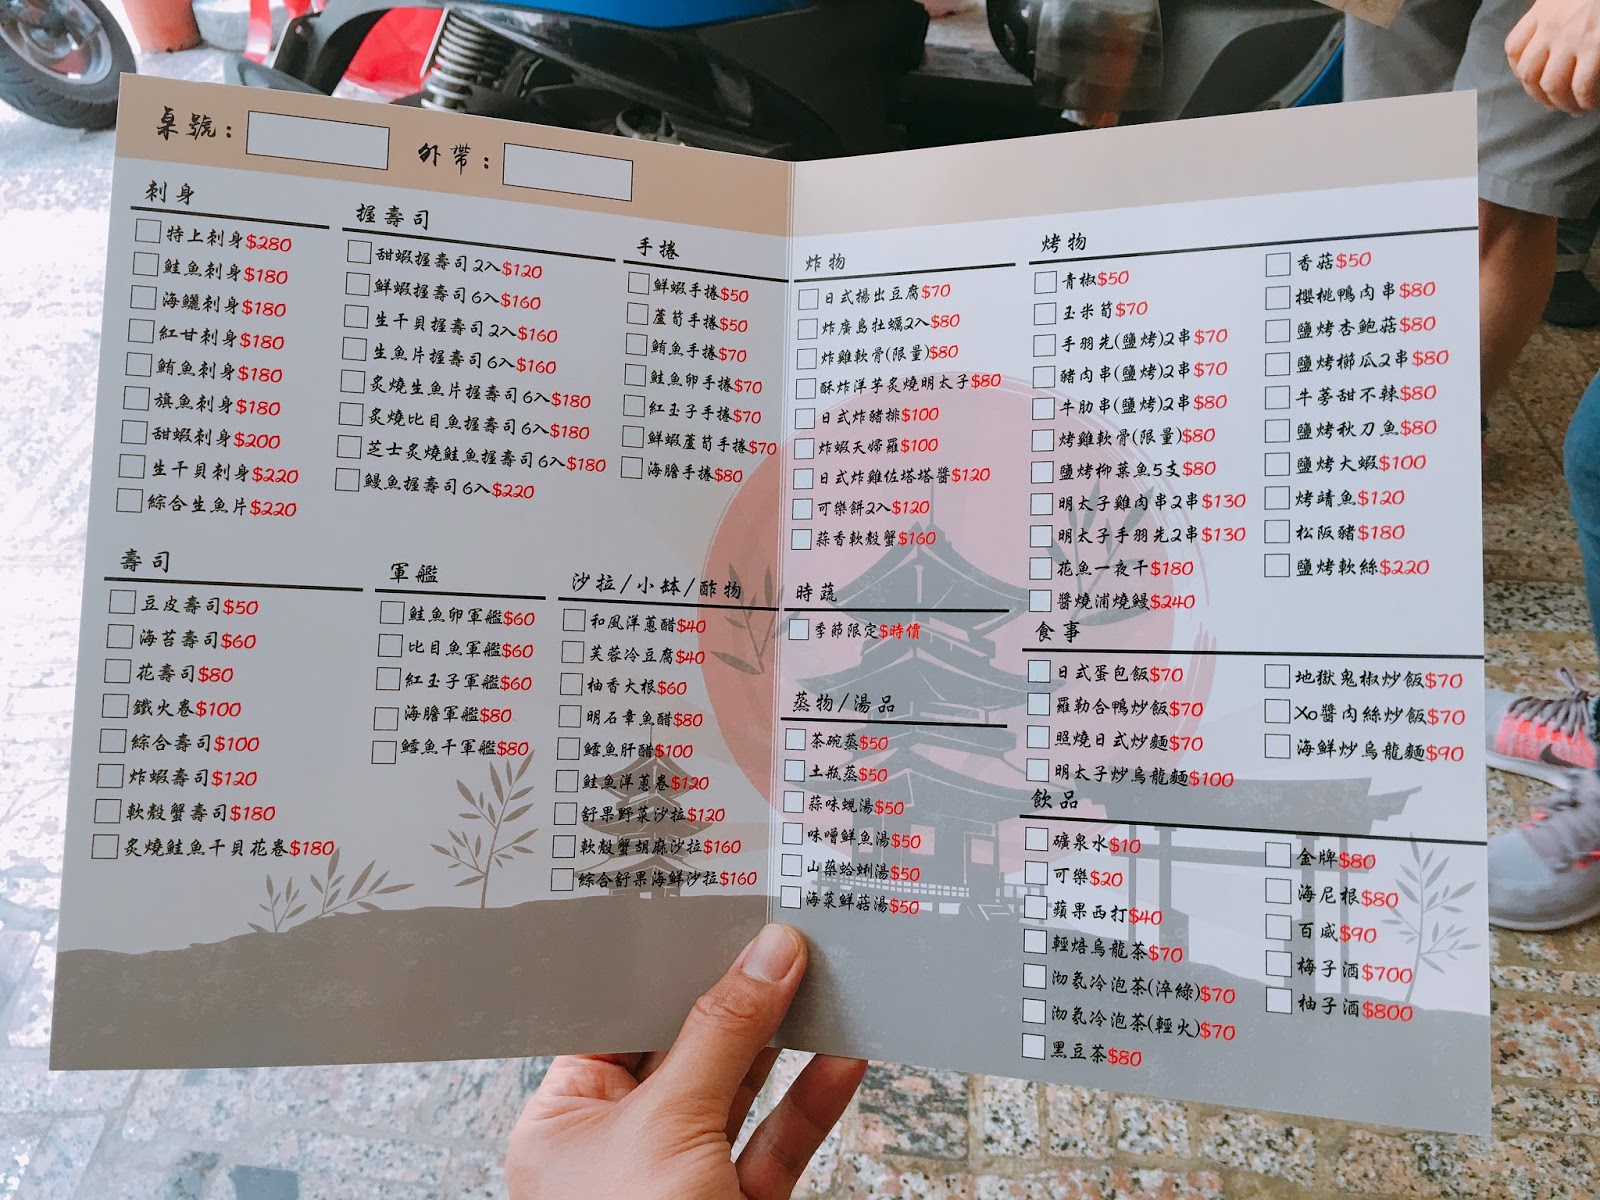 桌號：
外帶：
刺身
特上刺身$280
鮭魚刺身$180
海鱺刺身$180
紅甘刺身$180
鮪魚刺身$180
旗魚刺身$180
甜蝦刺身$200
生干貝刺身$220
綜合生魚片$220
握壽司
甜蝦握壽司2入$120
鮮蝦握壽司6入$160
生干貝握壽司2入$160
生魚片握壽司6入$160
炙燒生魚片握壽司6入$180
炙燒比目魚握壽司6入$180
芝士炙燒鮭魚握壽司6入$180
鰻魚握壽司6入$220
手捲
鮮蝦手捲$50
蘆筍手捲$50
鮪魚手捲$70
鮭魚卵手捲$70
紅玉子手捲$70
鮮蝦蘆筍手捲$70
海膽手捲$80
壽司
豆皮壽司$50
海苔壽司$60
花壽司$80
鐵火卷$100
綜合壽司$100
炸蝦壽司$120
軟殼蟹壽司$180
炙燒鮭魚干貝花卷$180
軍艦
鮭魚卵軍艦$60
比目魚軍艦$60
紅玉子軍艦$60
海膽軍艦$80
鱈魚干軍艦$80
沙拉/小缽/酢物
和風洋蔥醋$40
芙蓉冷豆腐$40
柚香大根$60
明石章魚醋$80
鱈魚肝醋$100
鮭魚洋蔥卷$120
舒果野菜沙拉$120
軟殼蟹胡麻沙拉$160
綜合舒果海鮮沙拉$160
炸物
日式揚出豆腐$70
炸廣島牡蠣2入$80
炸雞軟骨(限量)$80
酥炸洋芋炙燒明太子$80
日式炸豬排$100
炸蝦天婦羅$100
日式炸雞佐塔塔醬$120
可樂餅2入$120
蒜香軟殼蟹$160
時蔬
季節限定$時價
蒸物/湯品
茶碗蒸$50
土瓶蒸$50
蒜味蜆湯$50
味噌鮮魚湯$50
山藥蛤蜊湯$50
海菜鮮菇湯$50
烤物
青椒$50
玉米筍$70
手羽先(鹽烤)2串$70
豬肉串(鹽烤)2串$70
牛肋串(鹽烤)2串$80
烤雞軟骨(限量)$80
鹽烤柳葉魚5支$80
明太子雞肉串2串$130
明太子手羽先2串$130
花魚一夜干$180
醬燒浦燒鰻$240
香菇$50
櫻桃鴨肉串$80
鹽烤杏鮑菇$80
鹽烤櫛瓜2串$80
牛蒡甜不辣$80
鹽烤秋刀魚$80
鹽烤大蝦$100
烤鯖魚$120
松阪豬$180
鹽烤軟絲$220
食事
日式蛋包飯$70
羅勒合鴨炒飯$70
照燒日式炒麵$70
明太子炒烏龍麵$100
地獄鬼椒炒飯$70
Xo醬肉絲炒飯$70
海鮮炒烏龍麵$90
飲品
礦泉水$10
可樂$20
蘋果西打$40
輕焙烏龍茶$70
沏氛冷泡茶(淬綠)$70
沏氛冷泡茶(輕火)$70
黑豆茶$80
金牌$80
海尼根$80
百威$90
梅子酒$700
柚子酒$800